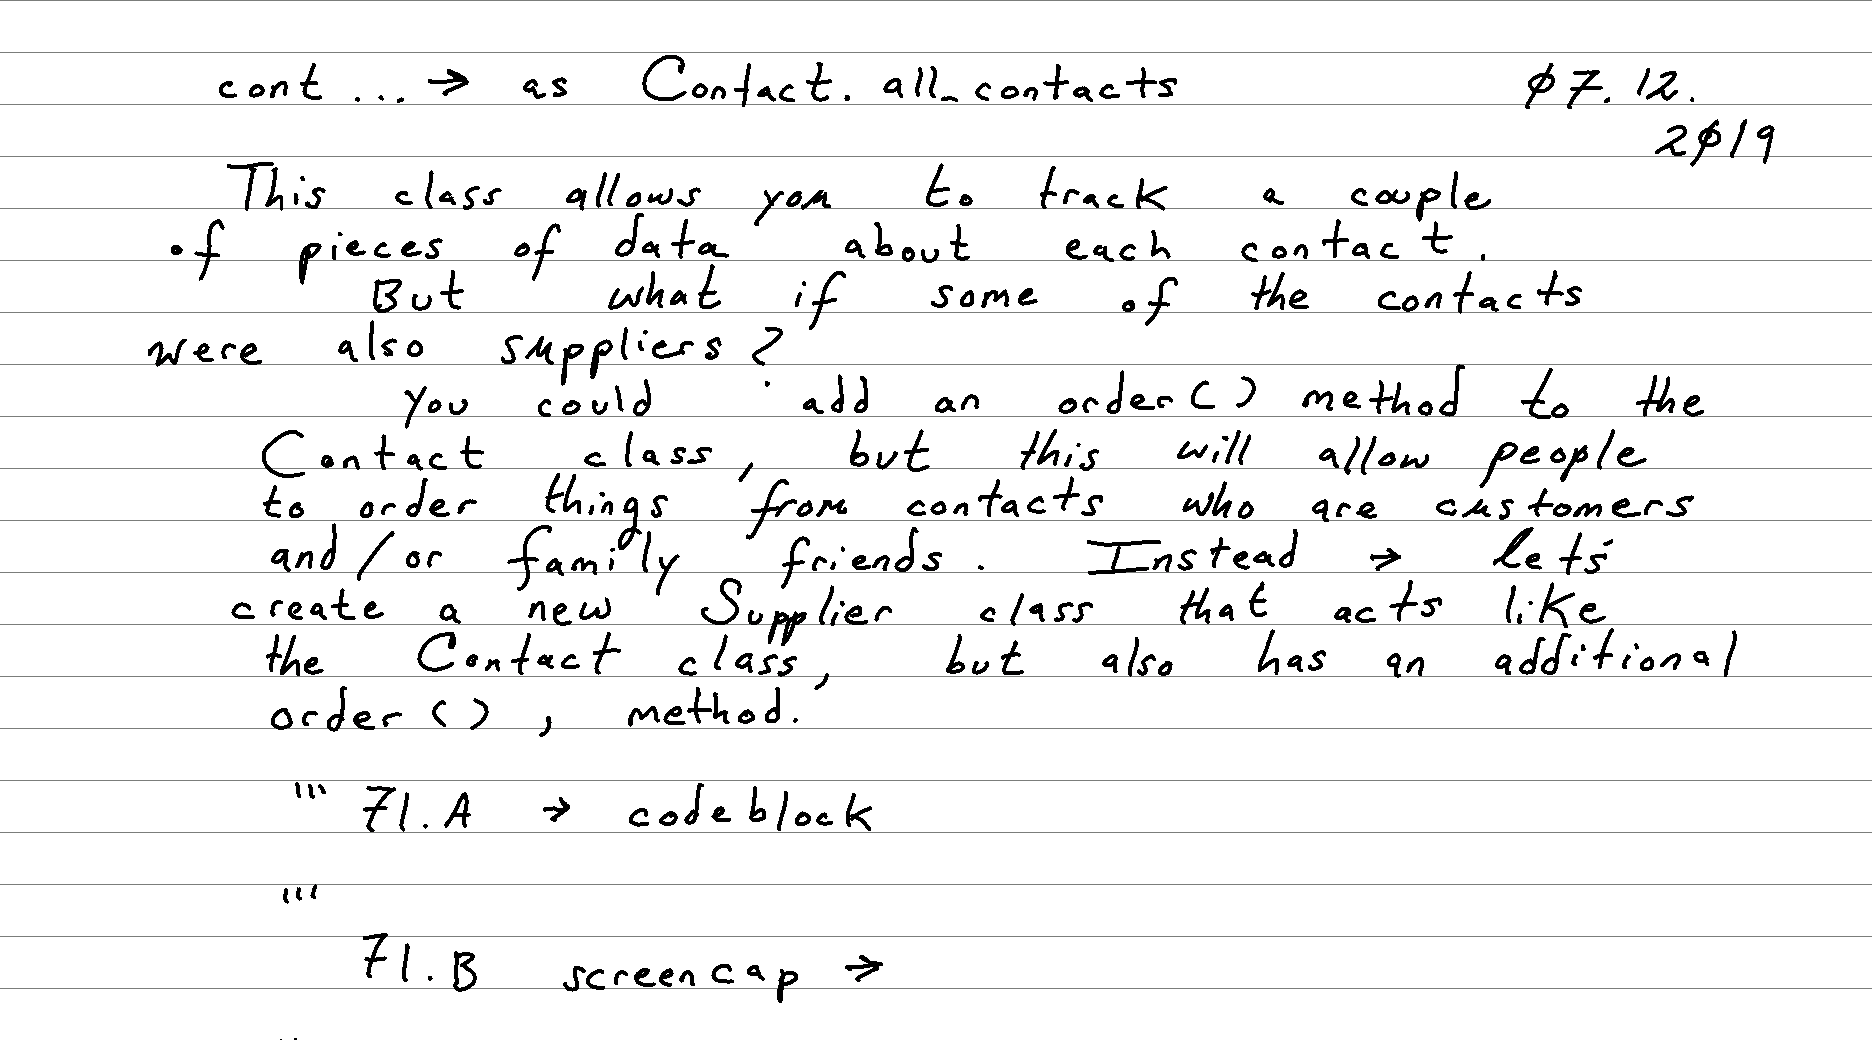 cont ... → as Contact. all_contacts ø7. 12.
2ø19
This class allows you to track a couple
of pieces of data about each contact.
But what if some of the contacts
were also suppliers?
You could add an order() method to the
Contact class, but this will allow people
to order things from contacts who are customers
and/or family friends. Instead → let's
create a new Supplier class that acts like
the Contact class, but also has an additional
order(), method.
''' 71.A → codeblock
'''
71.B screencap →